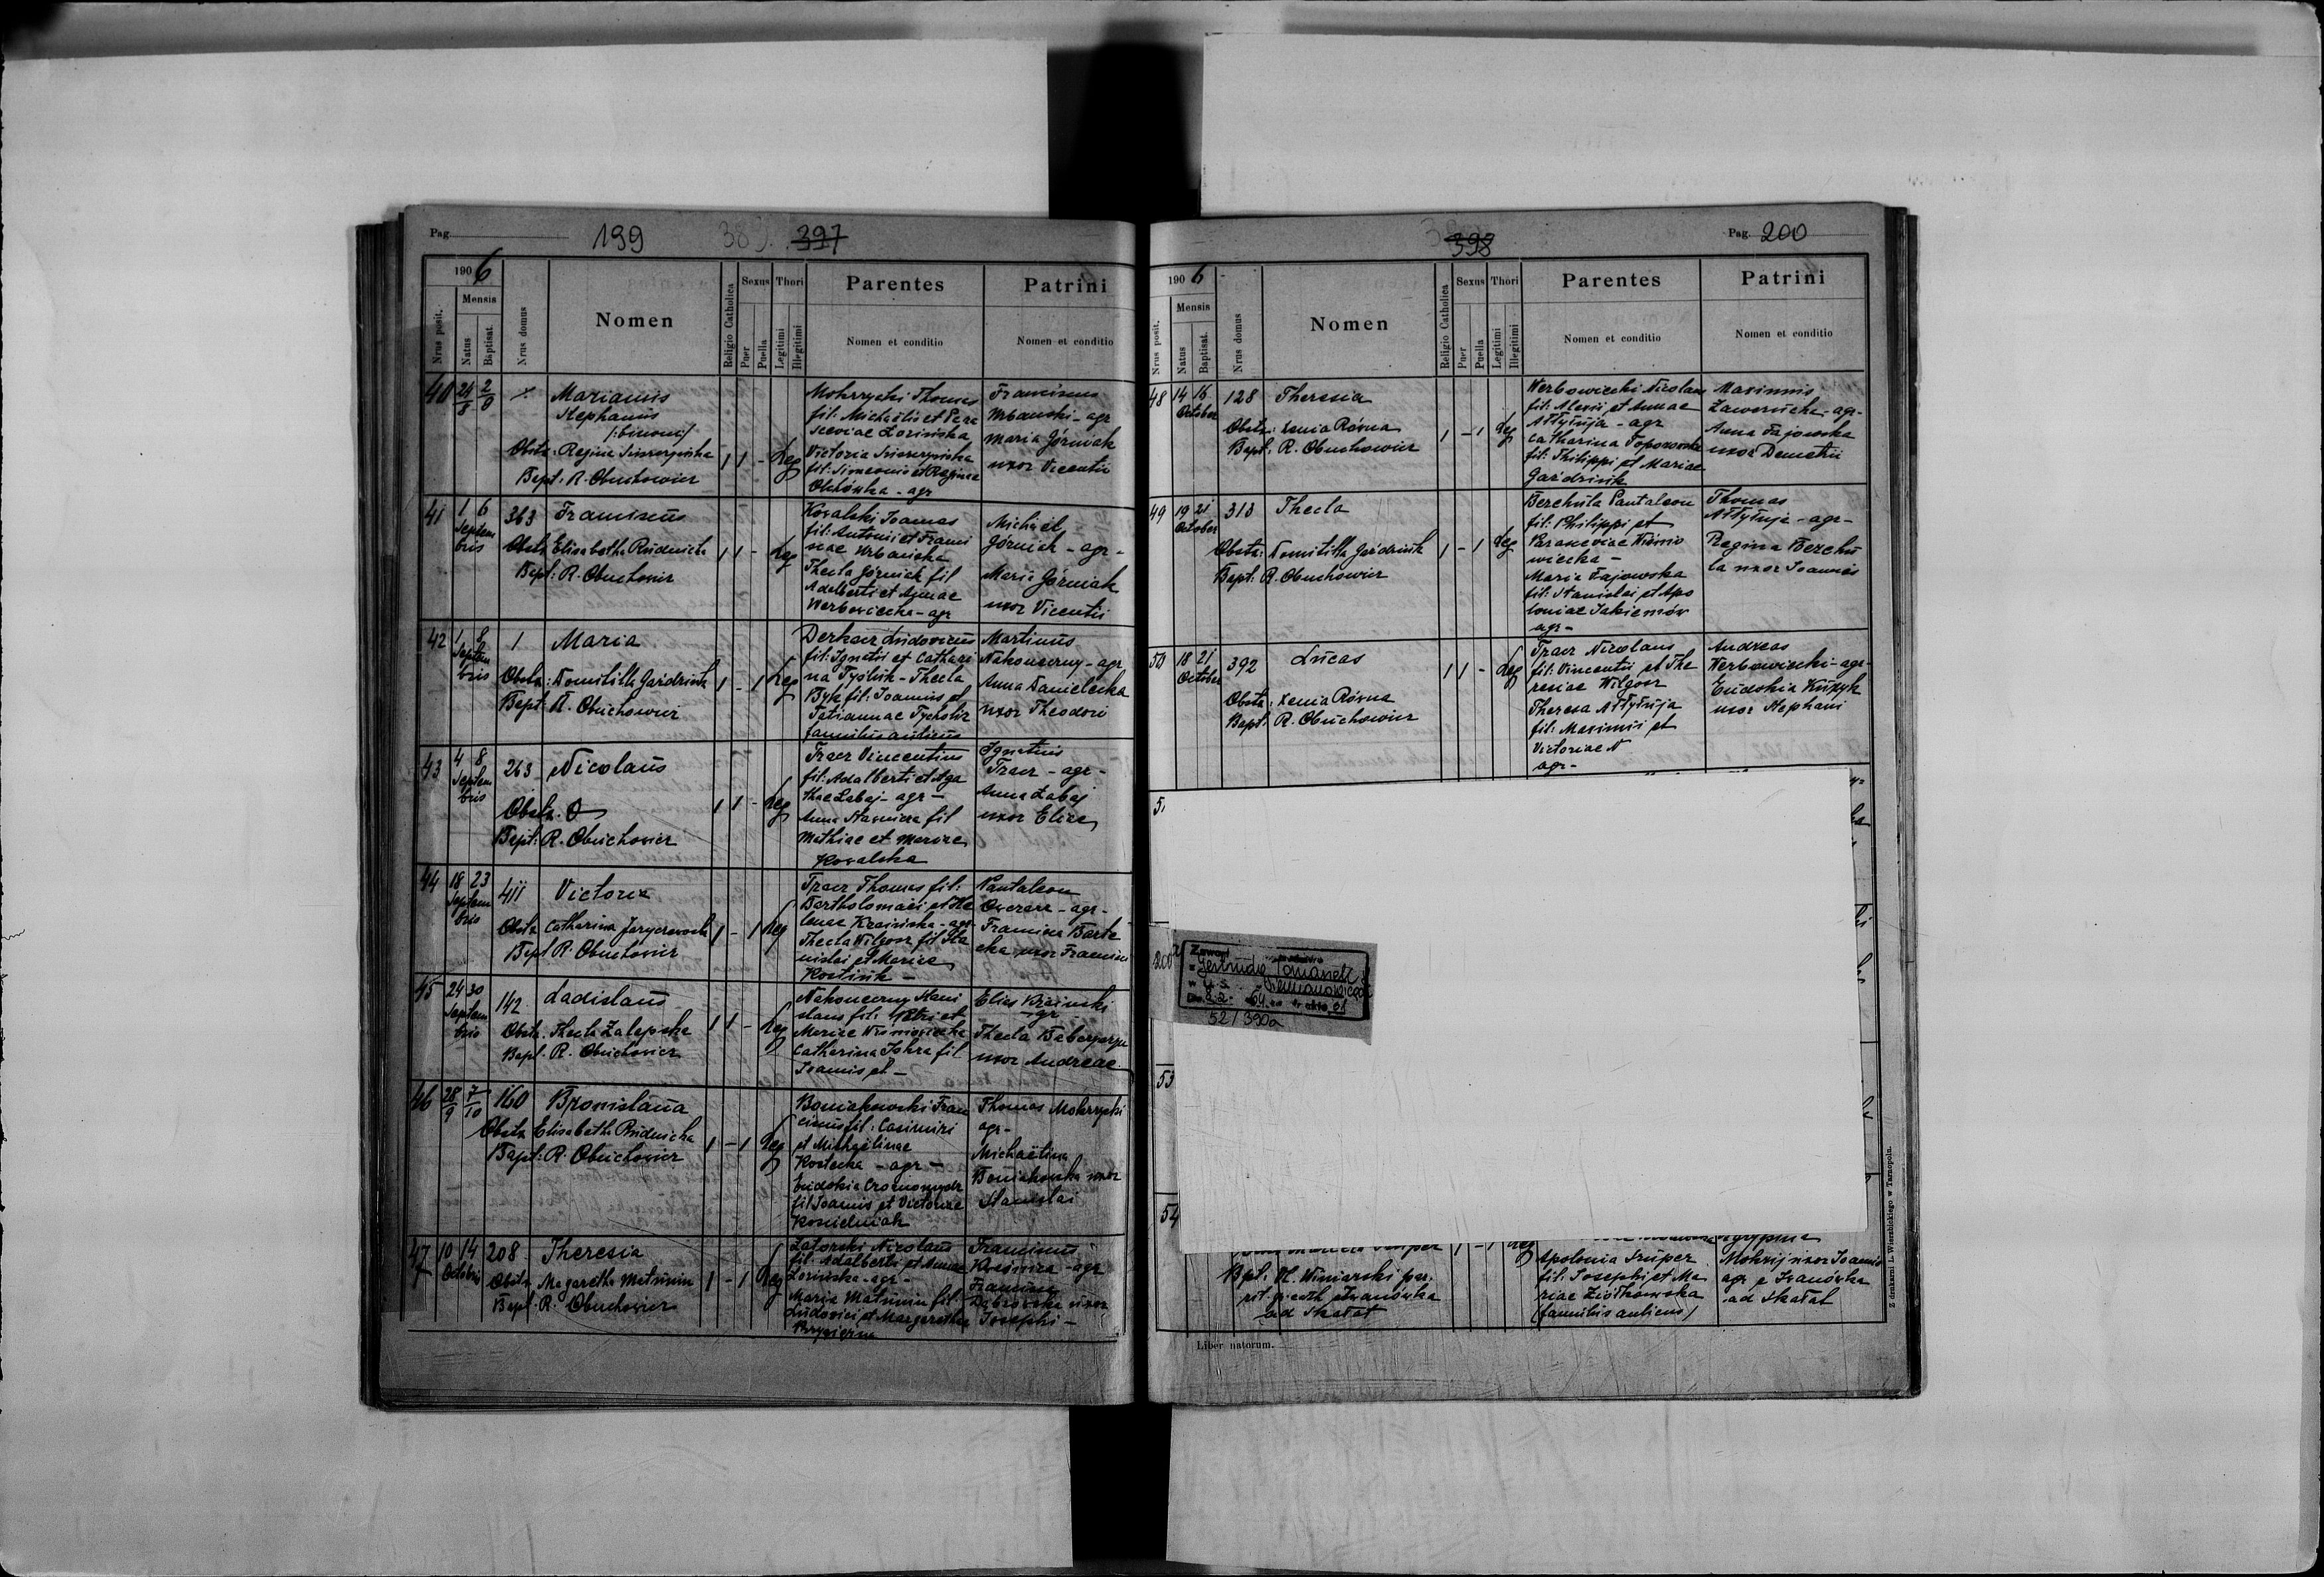 Pag.
199
397
1906
Nrus posit.
Mensis
Natus
Baptisat.
Nrus domus
Nomen
Religio Catholica
Sexus
Puer
Puella
Thori
Legitimi
Illegitimi
Parentes
Nomen et conditio
Patrini
Nomen et conditio
40
24/8
Marianus
Stephanus
Obstx. Regina
Bapt. R. Obuchowicz
1 1 - Leg
Mokrzycki Thomas
fil. Michaelis et Para
sceviae Łozińska
Victoria
fil. Simeonis et Reginae
agr
Franciscus
Urbanski - agr
Maria Górniak
uxor Vicentii
41
1 6
Septem
bris
363
Franciscus
Obstx Elisabetha Rudnicka
Bapt: R. Obuchowicz
1 1 - Leg
Kowalski Joannes
fil. Antonii et Franci
scae Urbanska
Thecla Górniak fil
Adalberti et Annae
Werbowiecka - agr
Michael
Górniak - agr -
Maria Górniak
uxor Vicentii
42
1 8
Septem
bris
1
Maria
Obstx: Domitilla Gaździuk
Bapt R. Obuchowicz
1 - 1 Leg
Derkacz Ludovicus
fil: Ignatii et Cathari
na - Thecla
Byk fil: Joannis et
Tatiannae
famulus aulicus
Martinus
Nakoneczny - agr
Anna Danielecka
uxor Theodori
43
4 8
Septem
bris
263
Nicolaus
Obstx. O
Bapt: R. Obuchowicz
1 1 - Leg
Tracz Vincentius
fil: Adalberti et Aga
thae Łabaj - agr -
Anna fil
Mathiae et Mariae
Kowalska
Ignatius
Tracz - agr -
Anna Łabaj
uxor Eliae
44
18 23
Septem
bris
411
Victoria
Obstx Catharina
Bapt R. Obuchowicz
1 - 1 Leg
Tracz Thomas fil:
Bartholomaei et He
lenae Krainska - agr
Thecla Wilgosz fil Sta
nislai et Mariae
Kostiuk -
Pantaleon
Owczarz - agr -
Francisca
uxor Francisci
45
24 30
Septem
bris
142
Ladislaus
Obstx. Thecla Zalepska
Bapt. R. Obuchowicz
1 1 - Leg
Nakoneczny Stani
slaus fil: Petri et
Mariae Wiśniowiecka
Catharina fil
Joannis et -
Elias Krainski
- agr -
Thecla
uxor Andreae
46
28/9
7/10
160
Bronislaua
Obstx Elisabeth Rudnicka
Bapt: R. Obuchowicz
1 - 1 Leg
Boniakowski Fran
ciscus fil: Casimiri
et Michaëlinae
Kostecka - agr -
Eudokia
fil Joannis et Victoriae
Kosielniak
Thomas Mokrzycki
agr -
Michaëlina
Boniakowska uxor
Stanislai
47
10 14
Octobris
208
Theresia
Obstx Magaretha Matunin
Bapt. R. Obuchowicz
1 - 1 Leg
Zatorski Nicolaus
fil. Adalberti et Annae
Łozińska - agr -
Maria Matunin fil:
Ludovici et Margarethae
Franciscus
agr
Francisca
Dąbrowska uxor
Josephi -
398
Pag. 200
1906
Nrus posit.
Mensis
Natus
Baptisat.
Nrus domus
Nomen
Religio Catholica
Sexus
Puer
Puella
Thori
Legitimi
Illegitimi
Parentes
Nomen et conditio
Patrini
Nomen et conditio
48
14 16
October
128
Theresia
Obstx: Xenia Równa
Bapt. R. Obuchowicz
1 - 1 Leg
Werbowiecki Nicolaus
fil: Alexii et Annae
Ałtyłuja - agr
Catharina Toporowska
fil: Philippi et Mariae
Gaździuk
Maximus
Zaweručha - agr -
Anna Fajowska
uxor Demetrii
49
19 21
October
313
Thecla
Obstx: Domitilla Gaździuk
Bapt. R. Obuchowicz
1 - 1 Leg
Berehula Pantaleon
fil: Philippi et
Parasceviae Wiśnio
wiecka -
Maria Fajowska
fil: Stanislai et Apo
loniae Jakiemów
agr -
Thomas
Ałtyłuja - agr -
Regina Berehu
la uxor Joannis
50
18 21
October
392
Lucas
Obstx: Xenia Równa
Bapt. R. Obuchowicz
1 1 - Leg
Tracz Nicolaus
fil: Vincentii et The
resiae Wilgosz
Theresa Ałtyłuja
fil: Maximi et
Victoriae N
agr -
Andreas
Werbowiecki - agr -
Eudokia Kuzyk
uxor Stephani
53
54
Gertruda
52/390a
Bpt. Vl. Winiarski par.
rit. gr. cath. Iwanówka
ad Skałat
Apolonia Super
fil. Josephi et Ma
riae Ziółkowska
(famulus aulicus)
Agrypina
Mokrij uxor Joannis
agr e Iwanówka
ad Skałat
Liber natorum.
Z drukarni L. Wierzbickiego w Tarnopolu.